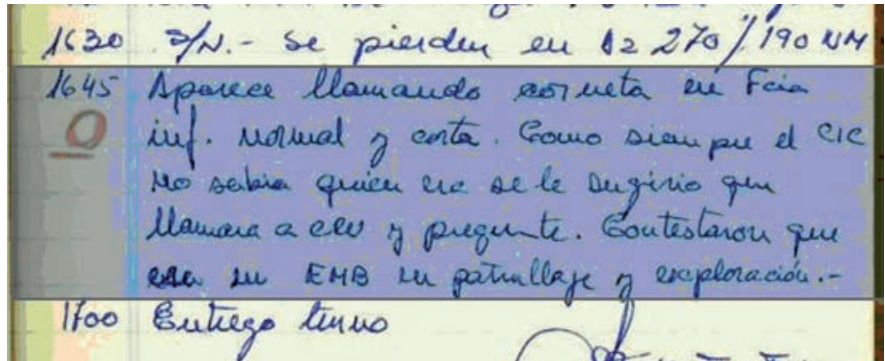 1630 S/N.- Se pierden en Az 270/190 NM
1645 Aparece llamando corneta en Fcia
inf. normal y corta. Como siempre el CIC
no sabia quien era se le sugirio que
llamara a CEV y pregunte. Contestaron que
era un EMB en patrullaje y exploración.-
1700 Entrego turno